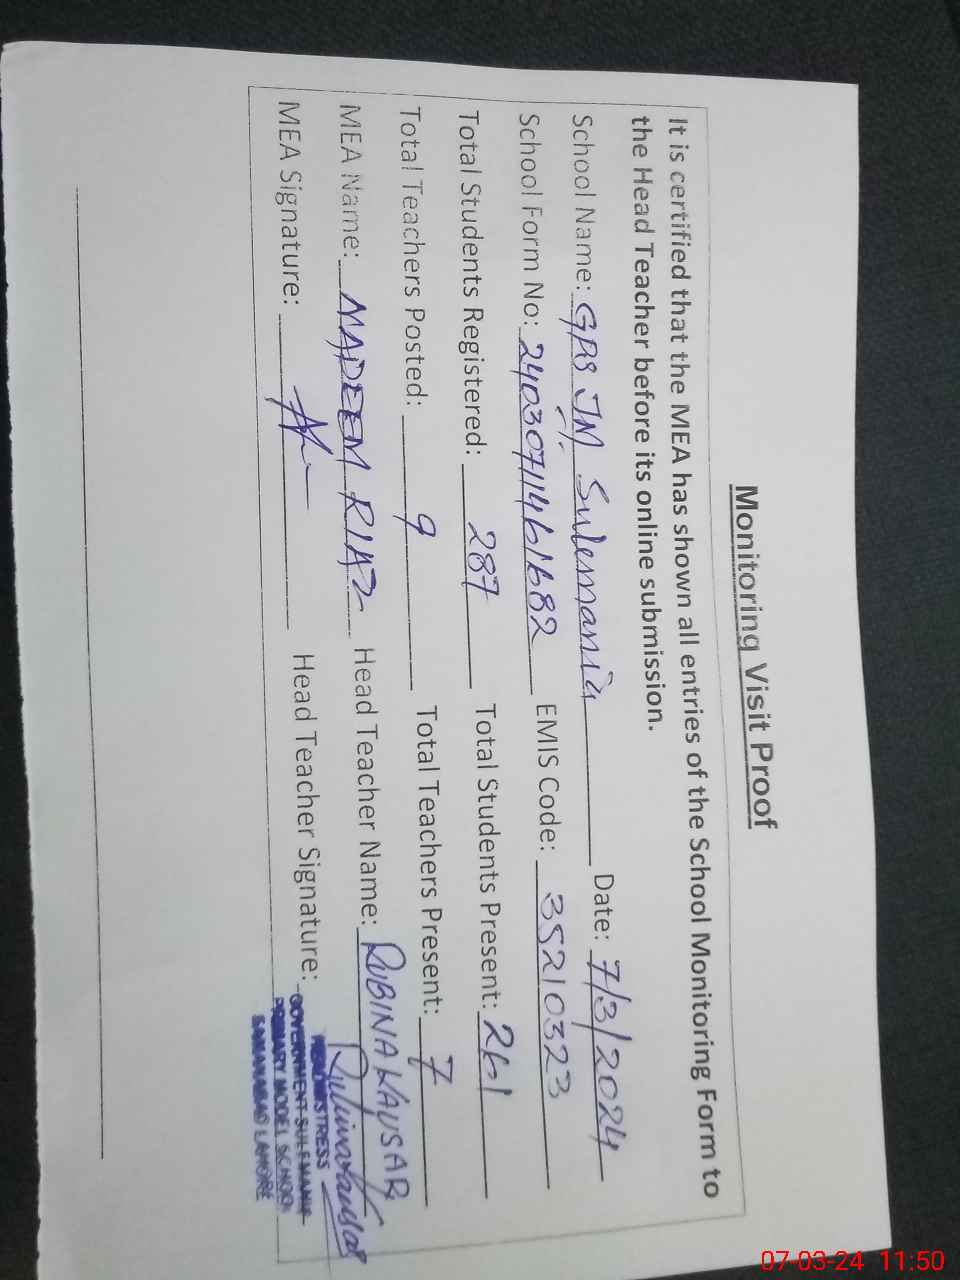 Monitoring Visit Proof
It is certified that the MEA has shown all entries of the School Monitoring Form to
the Head Teacher before its online submission.
School Name: GPS JM Sulemania Date: 7/3/2024
School Form No: 2403071461682 EMIS Code: 35210323
Total Students Registered: 287 Total Students Present: 261
Total Teachers Posted: 9 Total Teachers Present: 7
MEA Name: NADEEM RIAZ Head Teacher Name: RUBINA KAUSAR
MEA Signature: Head Teacher Signature: Rubina Kausar
HEADMISTRESS
GOVERNMENT SULEMANIA
PRIMARY MODEL SCHOOL
SAMANABAD LAHORE
07-03-24 11:50